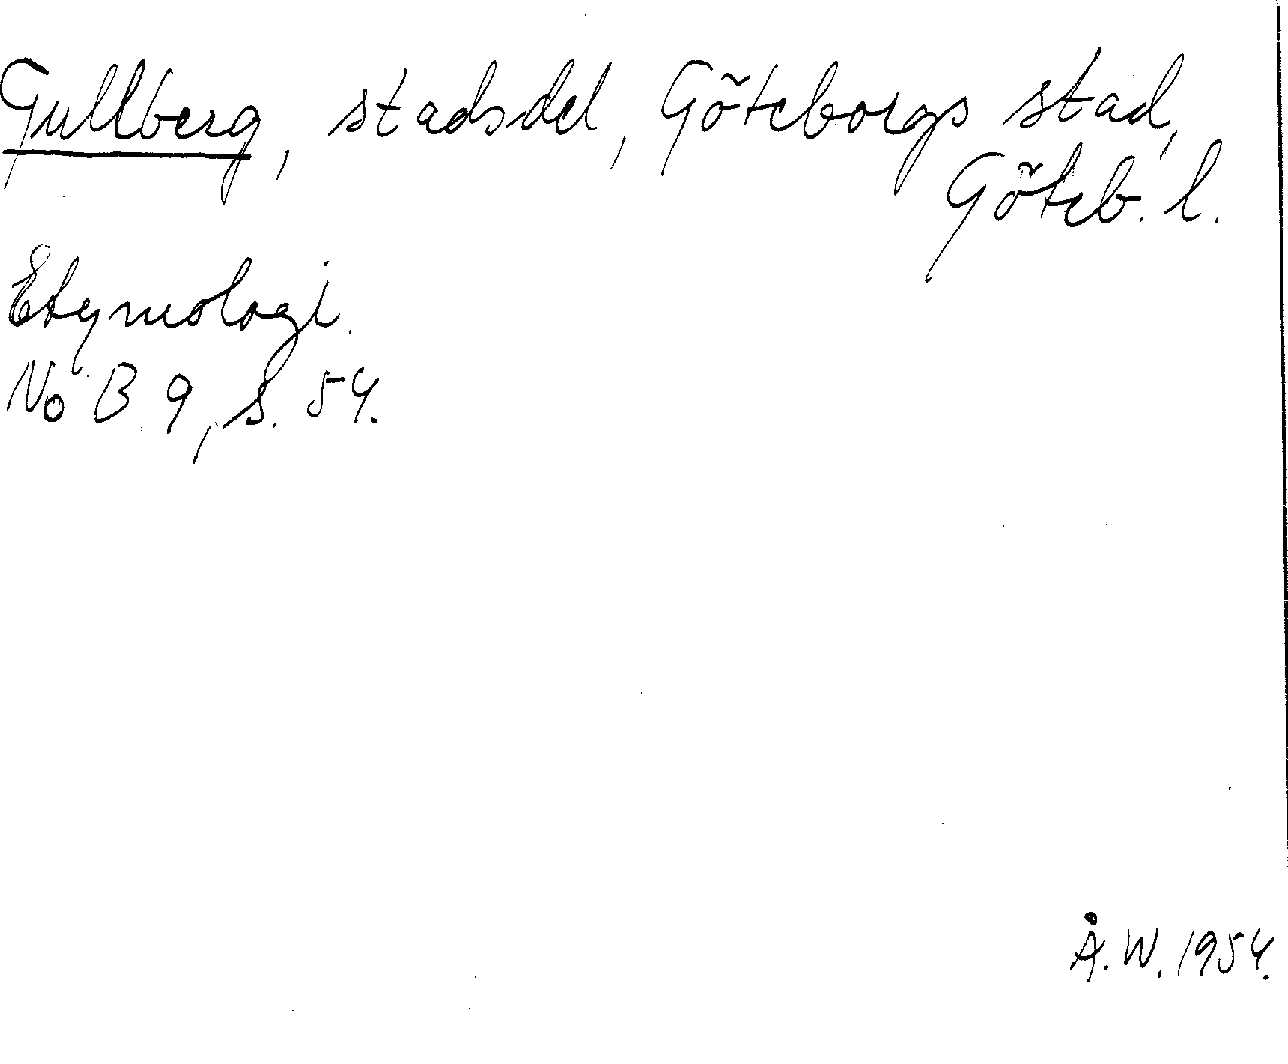 Gullberg, stadsdel, Göteborgs stad,
Göteb. l.
Etymologi.
NoB 9, s. 54.
Å. W. 1954.